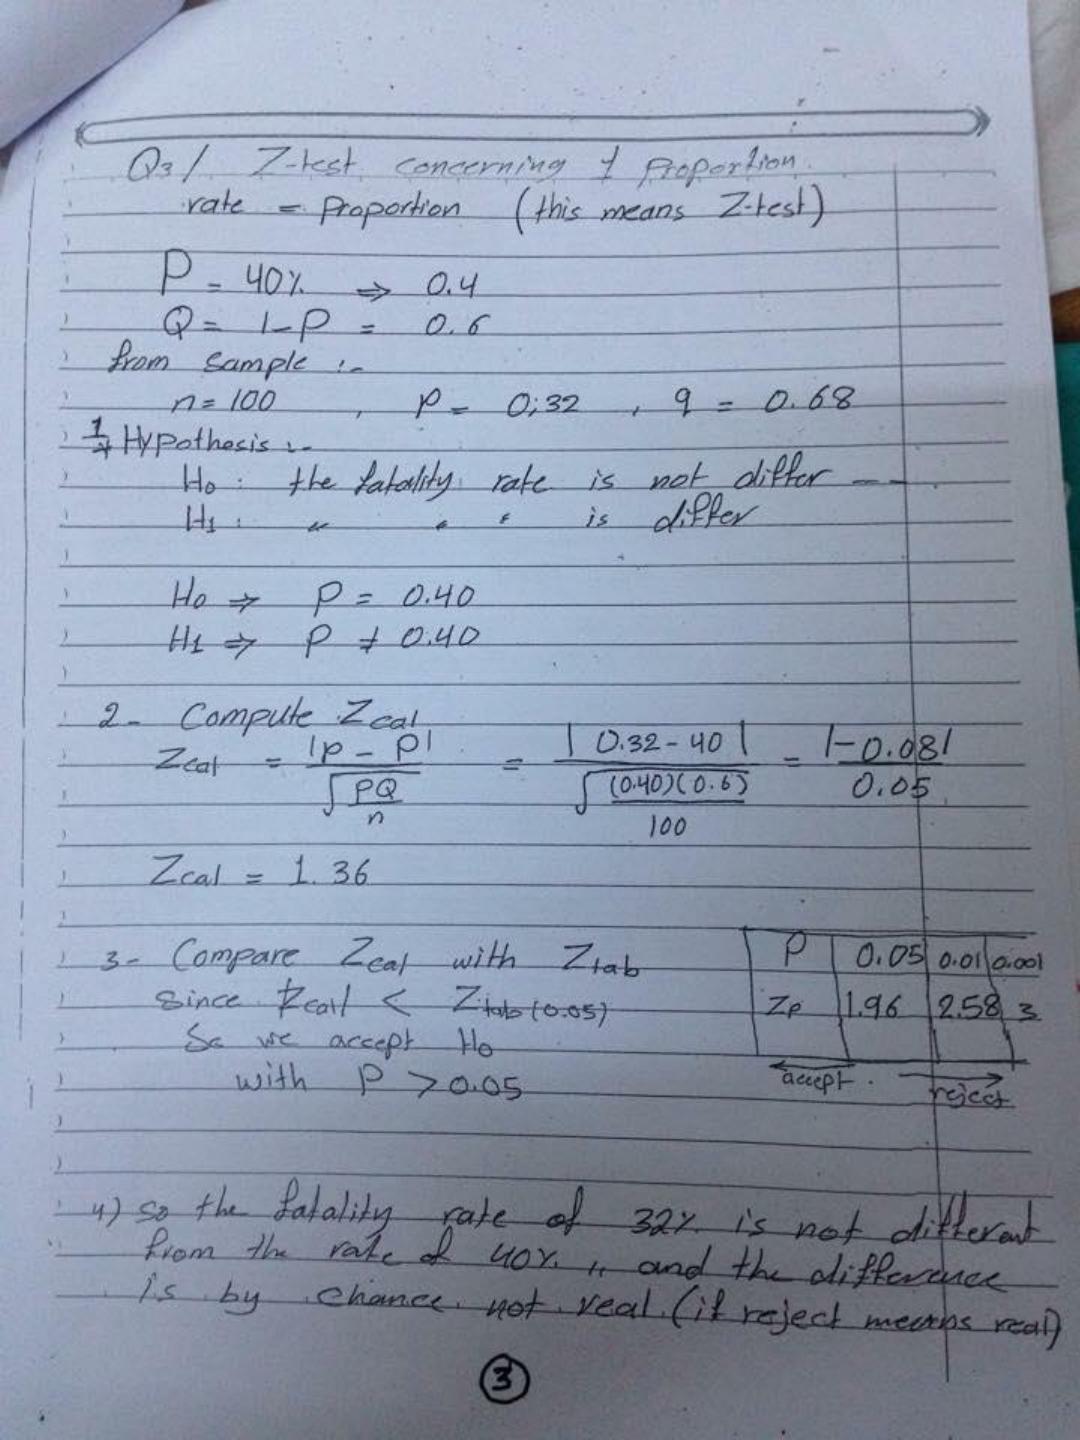 Q3/ Z-test concerning 1 proportion.
rate = proportion (this means Z-test)
P = 40% ⇒ 0.4
Q = 1-P = 0.6
from sample :-
n=100 , p = 0.32 , q = 0.68
1/ Hypothesis :-
Ho : the fatality rate is not differ ---.
H1 : " " " is differ
Ho ⇒ P = 0.40
H1 ⇒ P ≠ 0.40
2- Compute Zcal
Zcal = |p - P| / √(PQ/n) = |0.32-40| / √((0.40)(0.6)/100) = |-0.08| / 0.05
Zcal = 1.36
3- Compare Zcal with Ztab
since Zcal < Ztab(0.05)
So we accept Ho
with P >0.05
P 0.05 0.01 0.001
Zp 1.96 2.58 3
accept. reject
4) so the fatality rate of 32% is not different
from the rate of 40% ,, and the difference
is by chance not real (if reject means real)
3